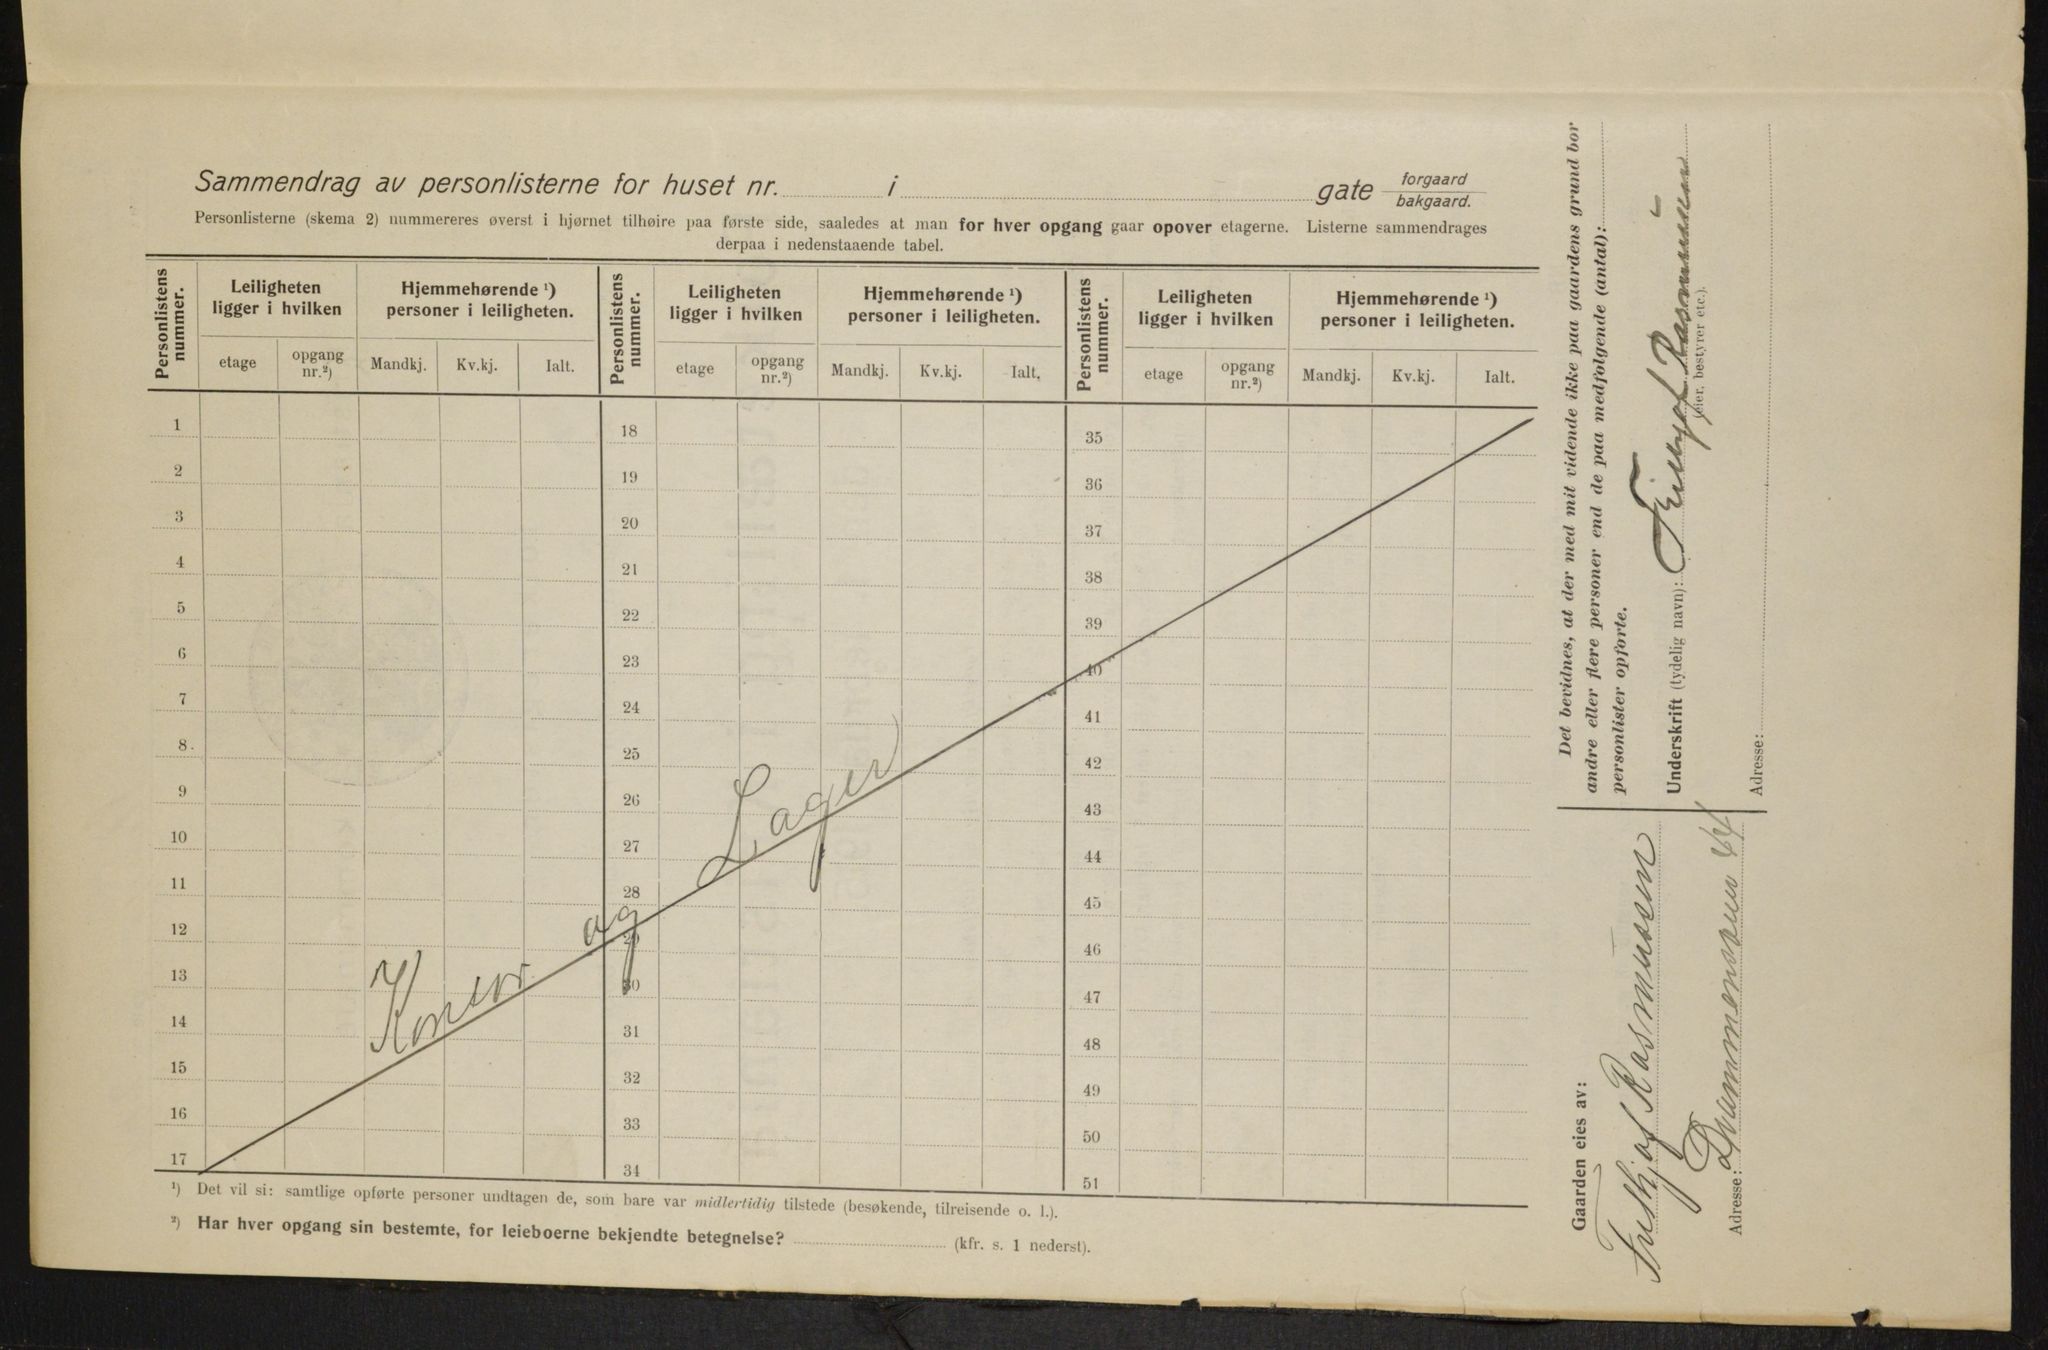 Sammendrag av personlisterne for huset nr. i gate forgaard bakgaard.
Personlisterne (skema 2) nummereres øverst i hjørnet tilhøire paa første side, saaledes at man for hver opgang gaar opover etagerne. Listerne sammendrages
derpaa i nedenstaaende tabel.
Personlistens nummer. Leiligheten ligger i hvilken Hjemmehørende ¹) personer i leiligheten. Personlistens nummer. Leiligheten ligger i hvilken Hjemmehørende ¹) personer i leiligheten. Personlistens nummer. Leiligheten ligger i hvilken Hjemmehørende ¹) personer i leiligheten.
etage opgang nr.²) Mandkj. Kv.kj. Ialt. etage opgang nr.²) Mandkj. Kv.kj. Ialt. etage opgang nr.²) Mandkj. Kv.kj. Ialt.
1 18 35
2 19 36
3 20 37
4 21 38
5 22 39
6 23 40
7 24 41
8 25 42
9 26 43
10 27 44
11 28 45
12 29 46
13 30 47
14 31 48
15 32 49
16 33 50
17 34 51
Kontor og Lager
¹) Det vil si: samtlige opførte personer undtagen de, som bare var midlertidig tilstede (besøkende, tilreisende o. l.).
²) Har hver opgang sin bestemte, for leieboerne bekjendte betegnelse? (kfr. s. 1 nederst).
Det bevidnes, at der med mit vidende ikke paa gaardens grund bor
andre eller flere personer end de paa medfølgende (antal):
personlister opførte.
Underskrift (tydelig navn): Rasmussen
(eier, bestyrer etc.).
Adresse:
Gaarden eies av:
Rasmussen
Adresse: Drammensveien 44